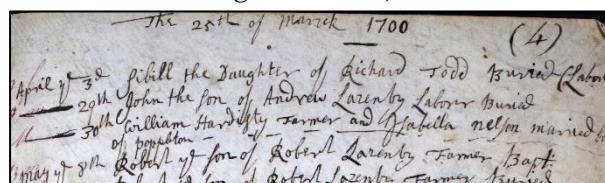 The 25th of March 1700
(4)
April ye 3d Sibill the Daughter of Richard Todd Buried (Labor
29th John the son of Andrew Lazenby Laborr Buried
30th William Hardisty Farmer and Isabella nelson married
of poppleton
may ye 8th Robert ye son of Robert Lazenby Farmer Bapt
son of Robert Lazenby Farmer Buried